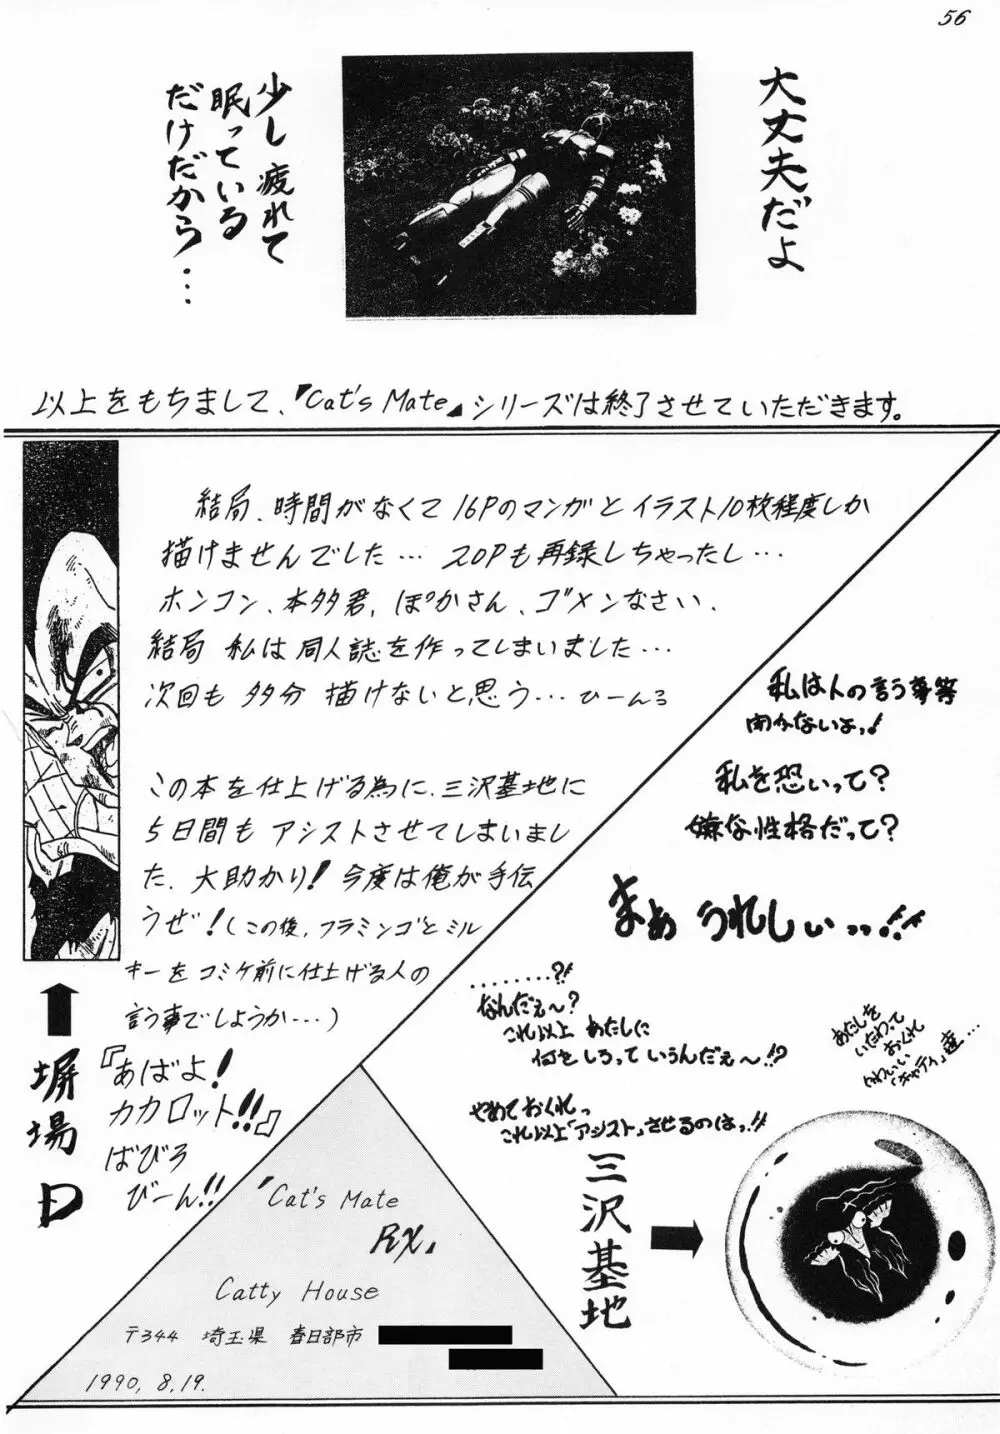 56
大丈夫だよ
少し疲れて
眠っている
だけだから・・・
以上をもちまして、『Cat's Mate』シリーズは終了させていただきます。
結局、時間がなくて16Pのマンガとイラスト10枚程度しか
描けませんでした… 20Pも再録しちゃったし…
ホンコン、本多君、ぽかさん、ゴメンなさい、
結局 私は同人誌を作ってしまいました…
次回も 多分 描けないと思う…ひーんろ
この本を仕上げる為に、三沢基地に
5日間も アシストさせてしまいまし
た、大助かり！今度は俺が手伝
うぜ！(この後、フラミンゴとミル
キーをコミケ前に仕上げる人の
言う事でしょうか…)
『あばよ！
カカロット!!』
ばびろ
びーん!!
塀場D
私は人の言う事等
聞かないよっ!
私を恐いって?
嫌な性格だって?
まぁ うれしぃ…!!
........?!
なんだぇ〜?
これ以上 あたしに
何をしろって いうんだぇ〜!?
やめておくれっ
これ以上「アシスト」させるのはっ!!
あたしを
いたわって
おくれ
かわいい
「キャティ」達…
三沢基地
「Cat's Mate
RX」
Catty House
〒344 埼玉県 春日部市
1990, 8, 19.